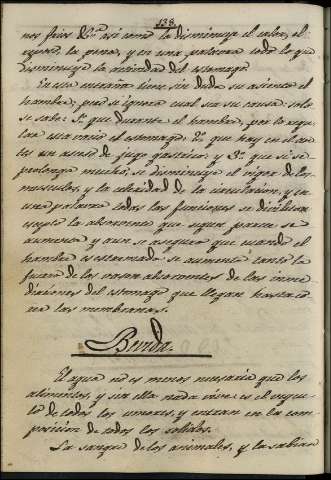 138.
nos frios &c.ª asi como la disminuye el calor, el
opio, la pena, y en una palabra todo lo que
disminuye la actividad del estomago.
En esta entraña tiene sin duda su asiento el
hambre, pues se ignora cual sea su causa: solo
se sabe: 1.º que durante el hambre, por lo regu-
lar esta vacio el estomago: 2.º que hay en el
un acceso de jugo gastrico; y 3.º que si se
prolonga mucho, se disminuye el vigor de los
musculos, y la celeridad de la circulacion, y en
una palabra todas las funciones se debilitan
excepto la absorvente que segun parece se
aumenta y aun se asegura que cuando el
hambre es estremada se aumenta tanto la
fuerza de los vasos absorventes de las inme-
diaciones del estomago que llegan hasta
las membranas.
Bevida.
El agua no es menos necesaria que los
alimentos, y sin ella nada vive: es el
de todos los umores, y entran en la com-
posicion de todos los solidos.
La sangre de los animales, y la sabia